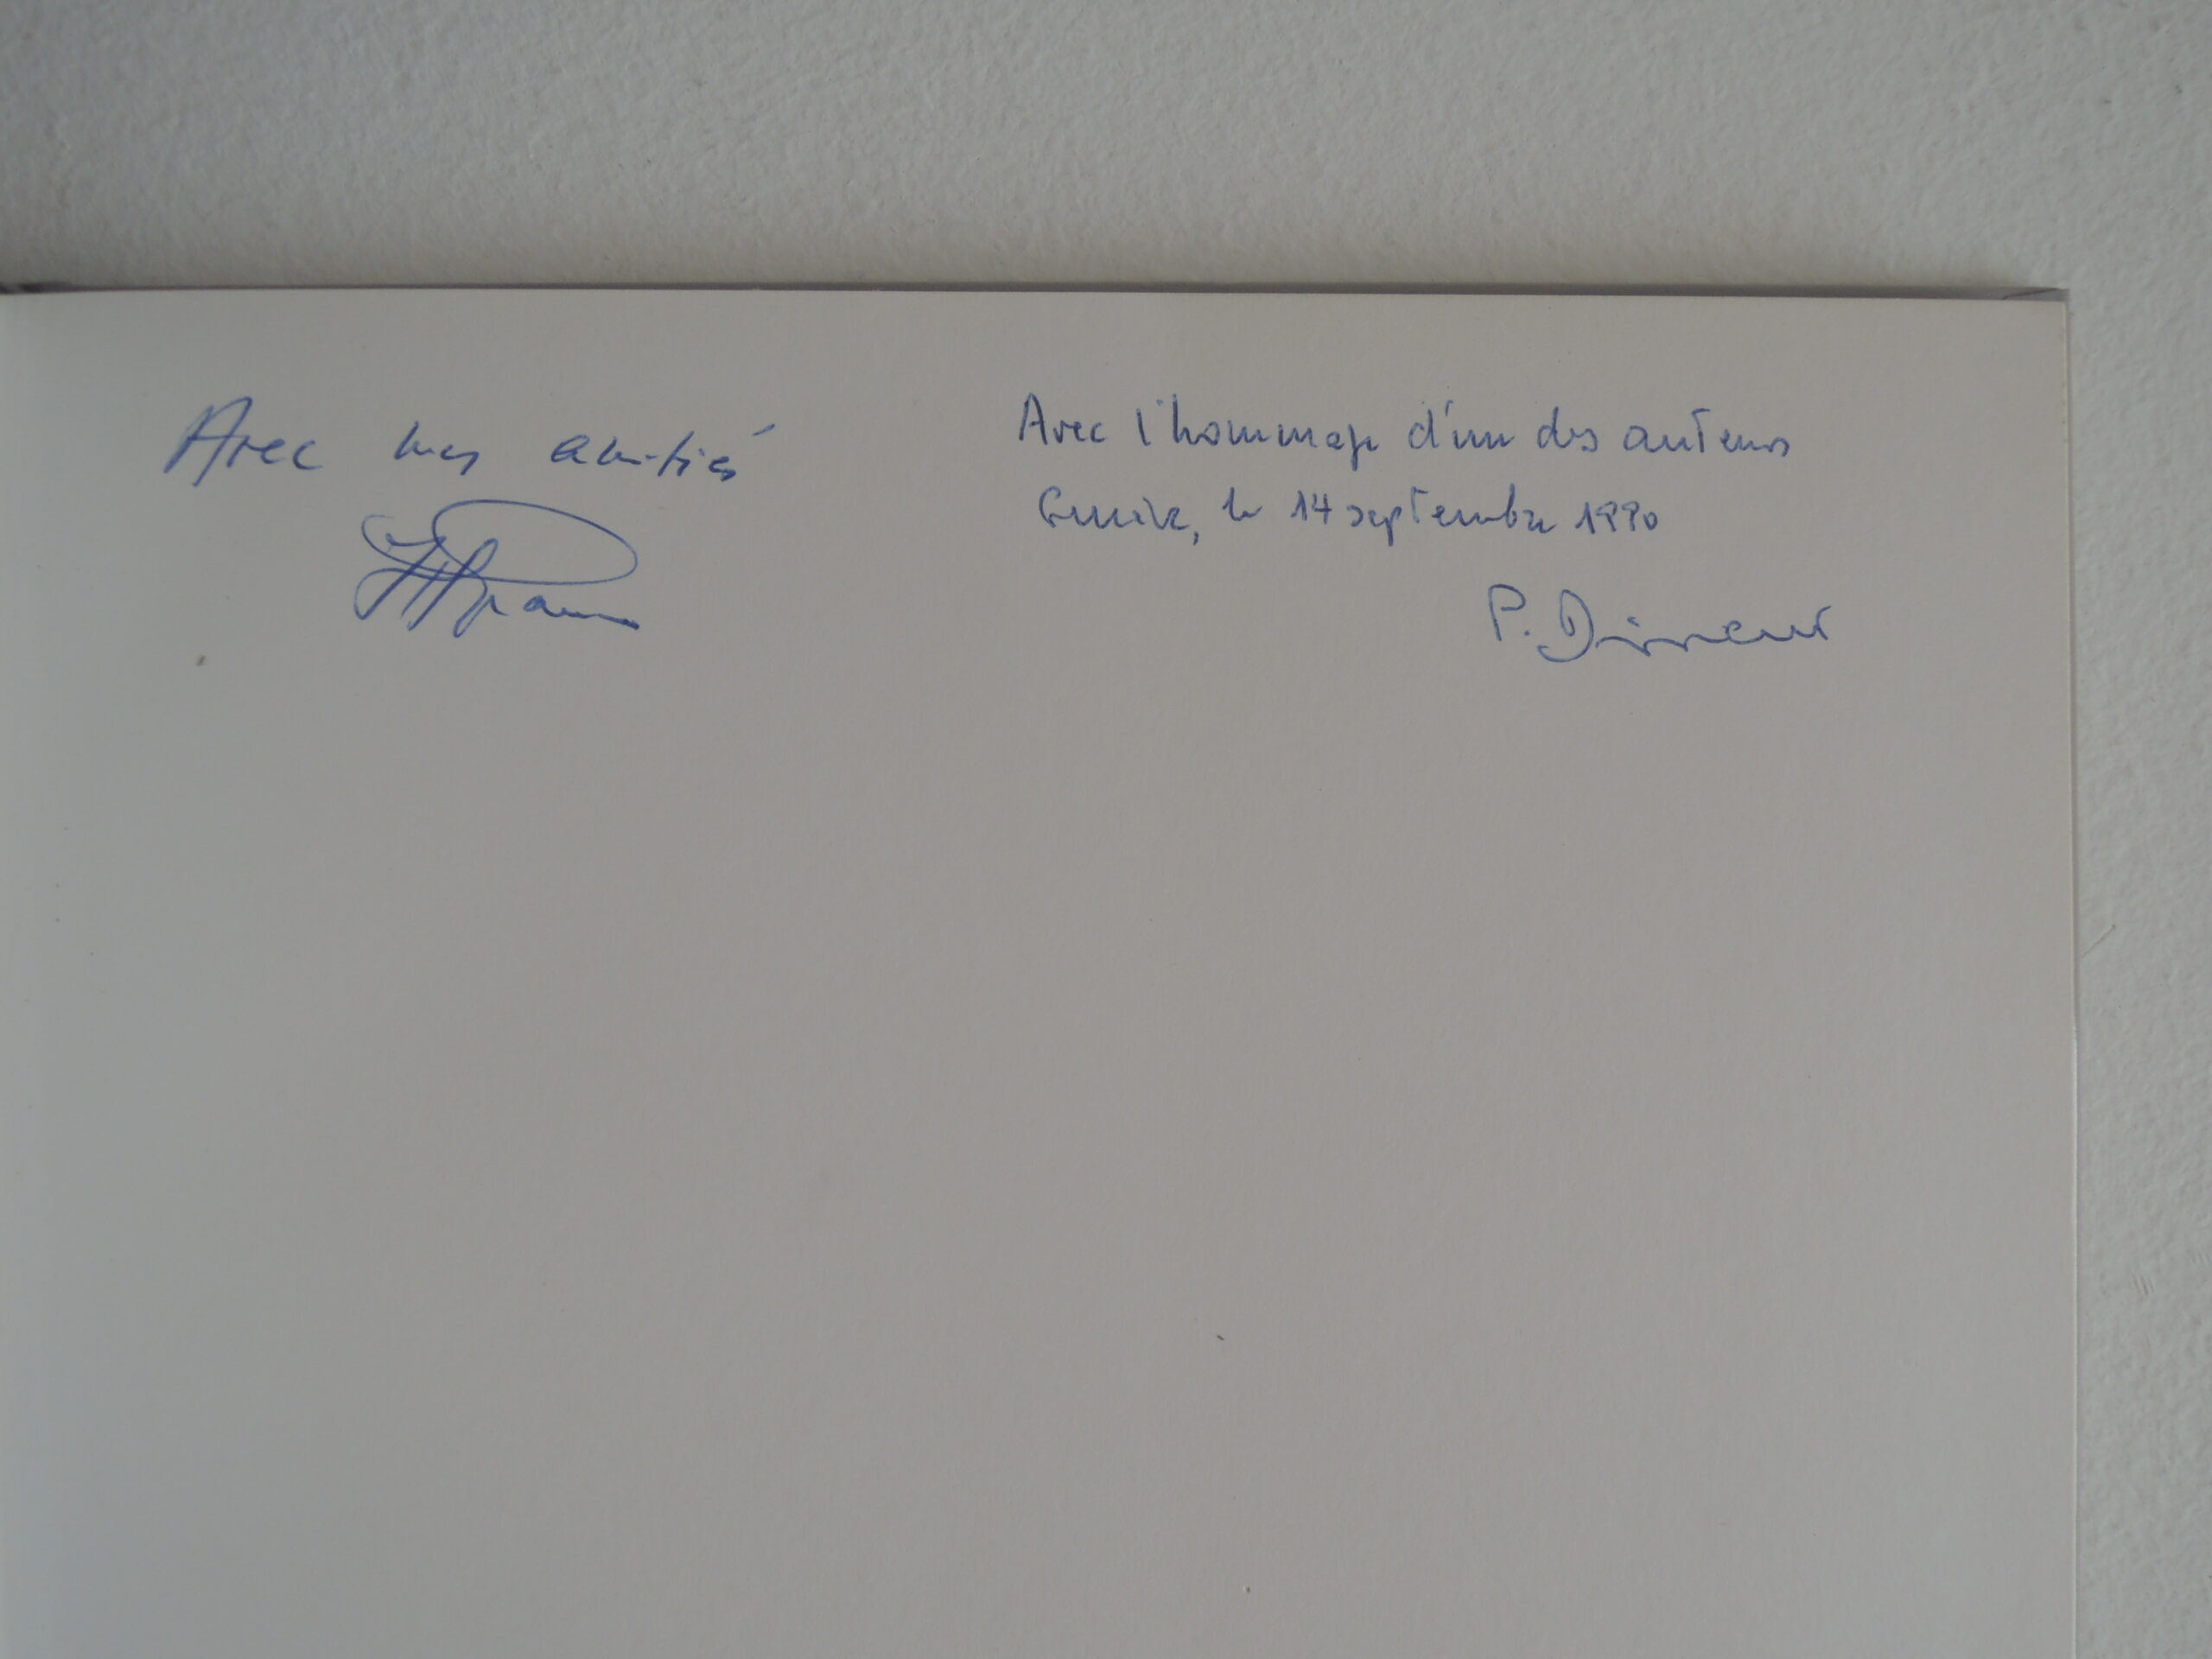 Avec mes amitiés
Avec l'hommage d'un des auteurs
Genève, le 14 septembre 1990
P.